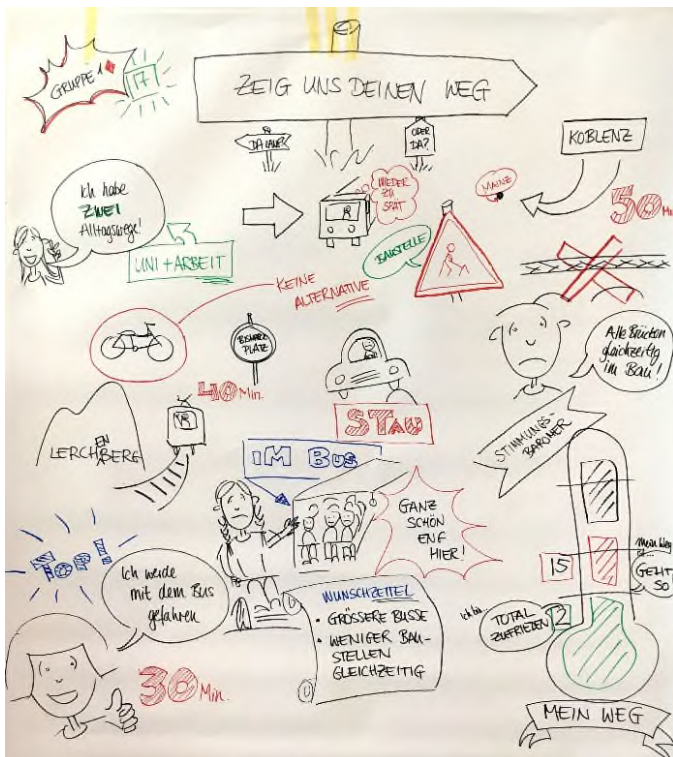 GRUPPE 1
17
ZEIG UNS DEINEN WEG
DA LANG?
ODER
DA?
KOBLENZ
Ich habe
ZWEI
Alltagswege!
UNI + ARBEIT
WIEDER
ZU
SPÄT
MAINZ
50 Min.
BAUSTELLE
KEINE
ALTERNATIVE
PLATZ
40 Min.
STAU
Alle Brücken
gleichzeitig
im Bau!
STIMMUNGS-
BAROMER
LERCHENBERG
IM BUS
GANZ
SCHÖN
ENG
HIER!
TOP!
Ich werde
mit dem Bus
gefahren
30 Min.
WUNSCHZETTEL
• GRÖSSERE BUSSE
• WENIGER BAU-
STELLEN
GLEICHZEITIG
15
mein Weg
GEHT
SO
Ich bin
TOTAL
ZUFRIEDEN
2
MEIN WEG